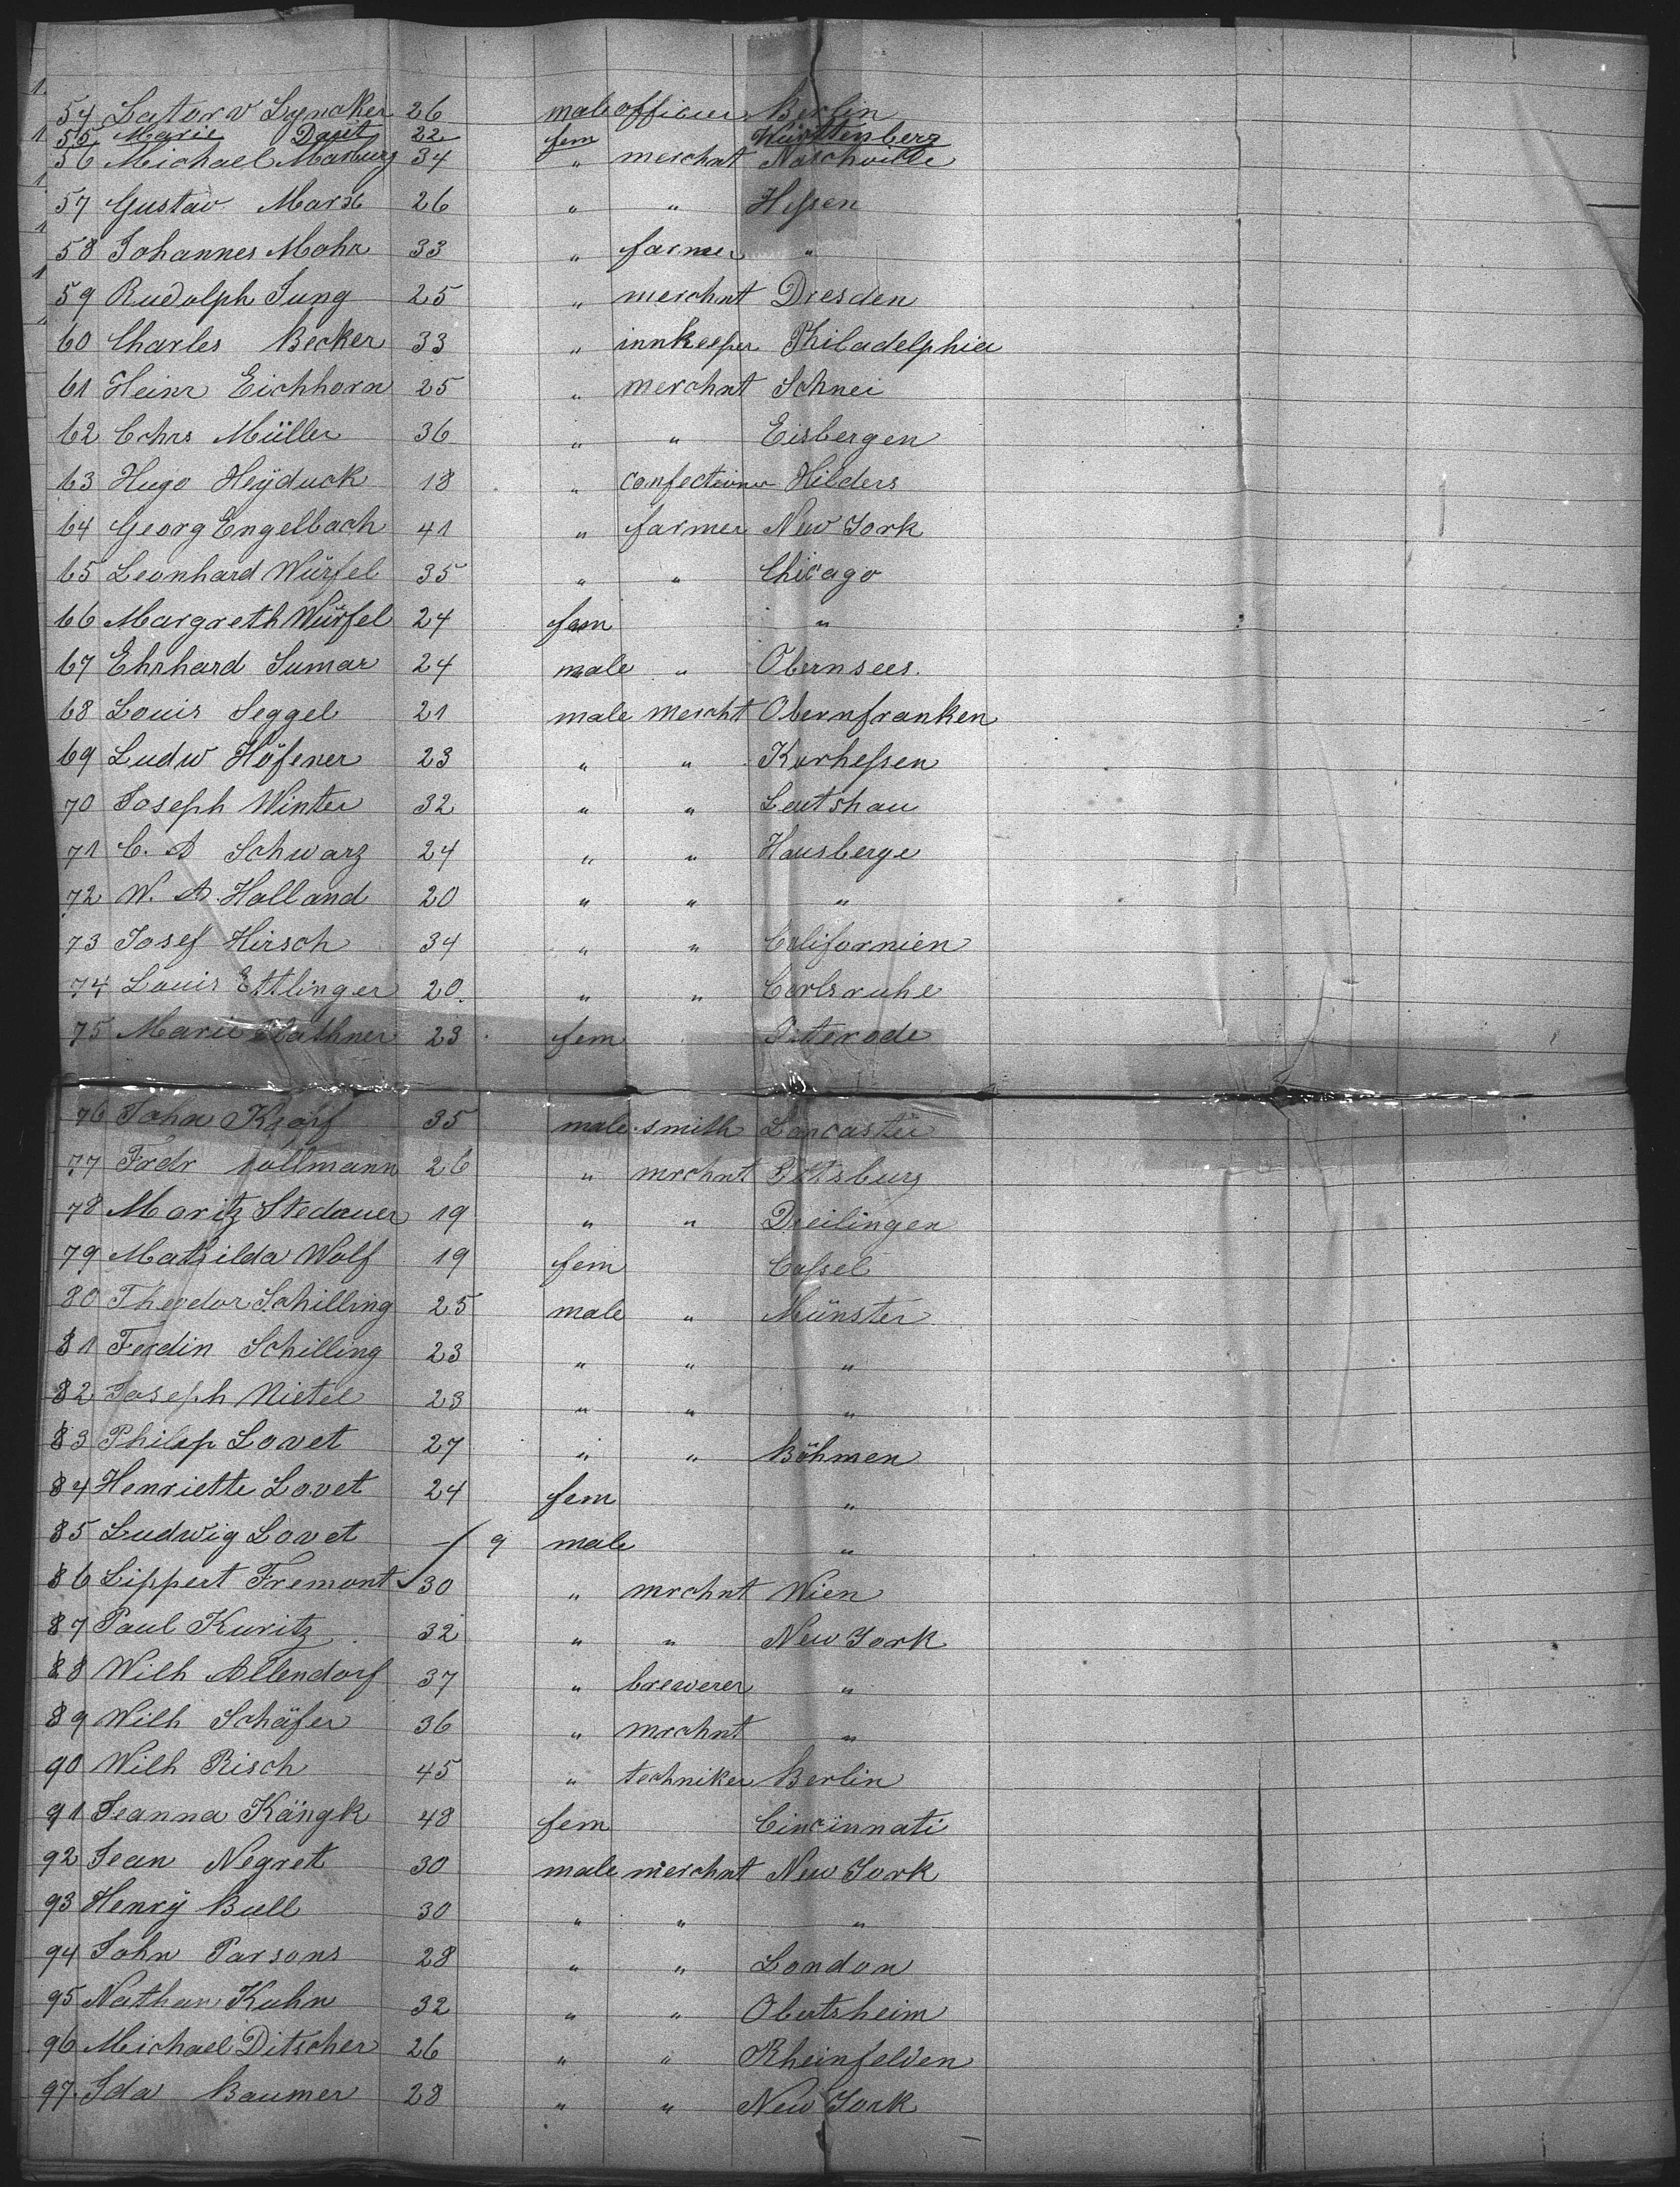 54 Lator v Lyncker 26 male officier Berlin
55 Marie Davit 22 fem Württenberg
56 Michael Marburg 34 " merchnt Naschville
57 Gustav Marx 26 " " Hessen
58 Johannes Mohr 33 " farmer "
59 Rudolph Jung 25 " merchnt Dresden
60 Charles Becker 33 " innkeeper Philadelphia
61 Heinr Eichhorn 25 " merchnt Schnei
62 Cchrs Müller 36 " " Eisbergen
63 Hugo Heyduck 18 " confectioner Hilders
64 Georg Engelbach 41 " farmer New York
65 Leonhard Würfel 35 " " Chicago
66 Margreth Würfel 24 fem "
67 Ehrhard Sumar 24 male " Obernsees.
68 Louis Seggel 21 male mercht Obernfranken
69 Ludw Höfener 23 " " Kurhessen
70 Joseph Winter 32 " " Leutshau
71 C. A Schwarz 24 " " Hausberge
72 W. A. Holland 20 " " "
73 Josef Hirsch 34 " " Californien
74 Louis Ettlinger 20. " " Carlsruhe
75 Marie 23 fem
76 John Kropf 35 male smith Lancaster
77 Fredr 26 " mrchnt Pittsburg
78 Moritz Stedauer 19 " " Dreilingen
79 Mathilda Wolf 19 fem Cassel
80 Theodor Schilling 25 male " Münster
81 Ferdin Schilling 23 " " "
82 Joseph Nietel 23 " " "
83 Philip Lovet 27 " " Böhmen
84 Henriette Lovet 24 fem "
85 Ludwig Lovet - 9 male "
86 Lippert Fremont 30 " mrchnt Wien
87 Paul Kuritz 32 " " New York
88 Wilh Allendorf 37 " brewerer "
89 Wilh Schäfer 36 " mrchnt "
90 Wilh Risch 45 " techniker Berlin
91 Jeanna Kängk 48 fem Cincinnati
92 Jean Negret 30 male merchnt New York
93 Henry Bull 30 " " "
94 John Parsons 28 " " London
95 Nathan Kuhn 32 " " Obertsheim
96 Michael Ditscher 26 " " Rheinfelden
97. Ida Baumer 28 " " New York